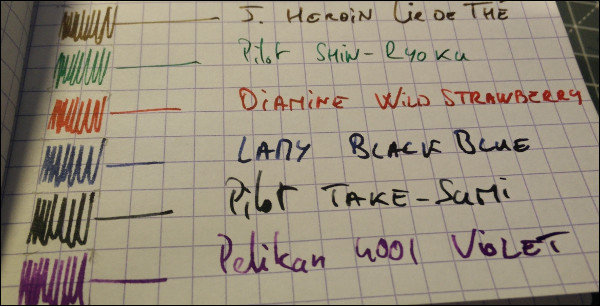 J. HERBIN LIE DE THÉ
Pilot SHIN-RYOKU
DIAMINE WILD STRAWBERRY
LAMY BLACK BLUE
Pilot TAKE-SUMI
Pelikan 4001 VIOLET